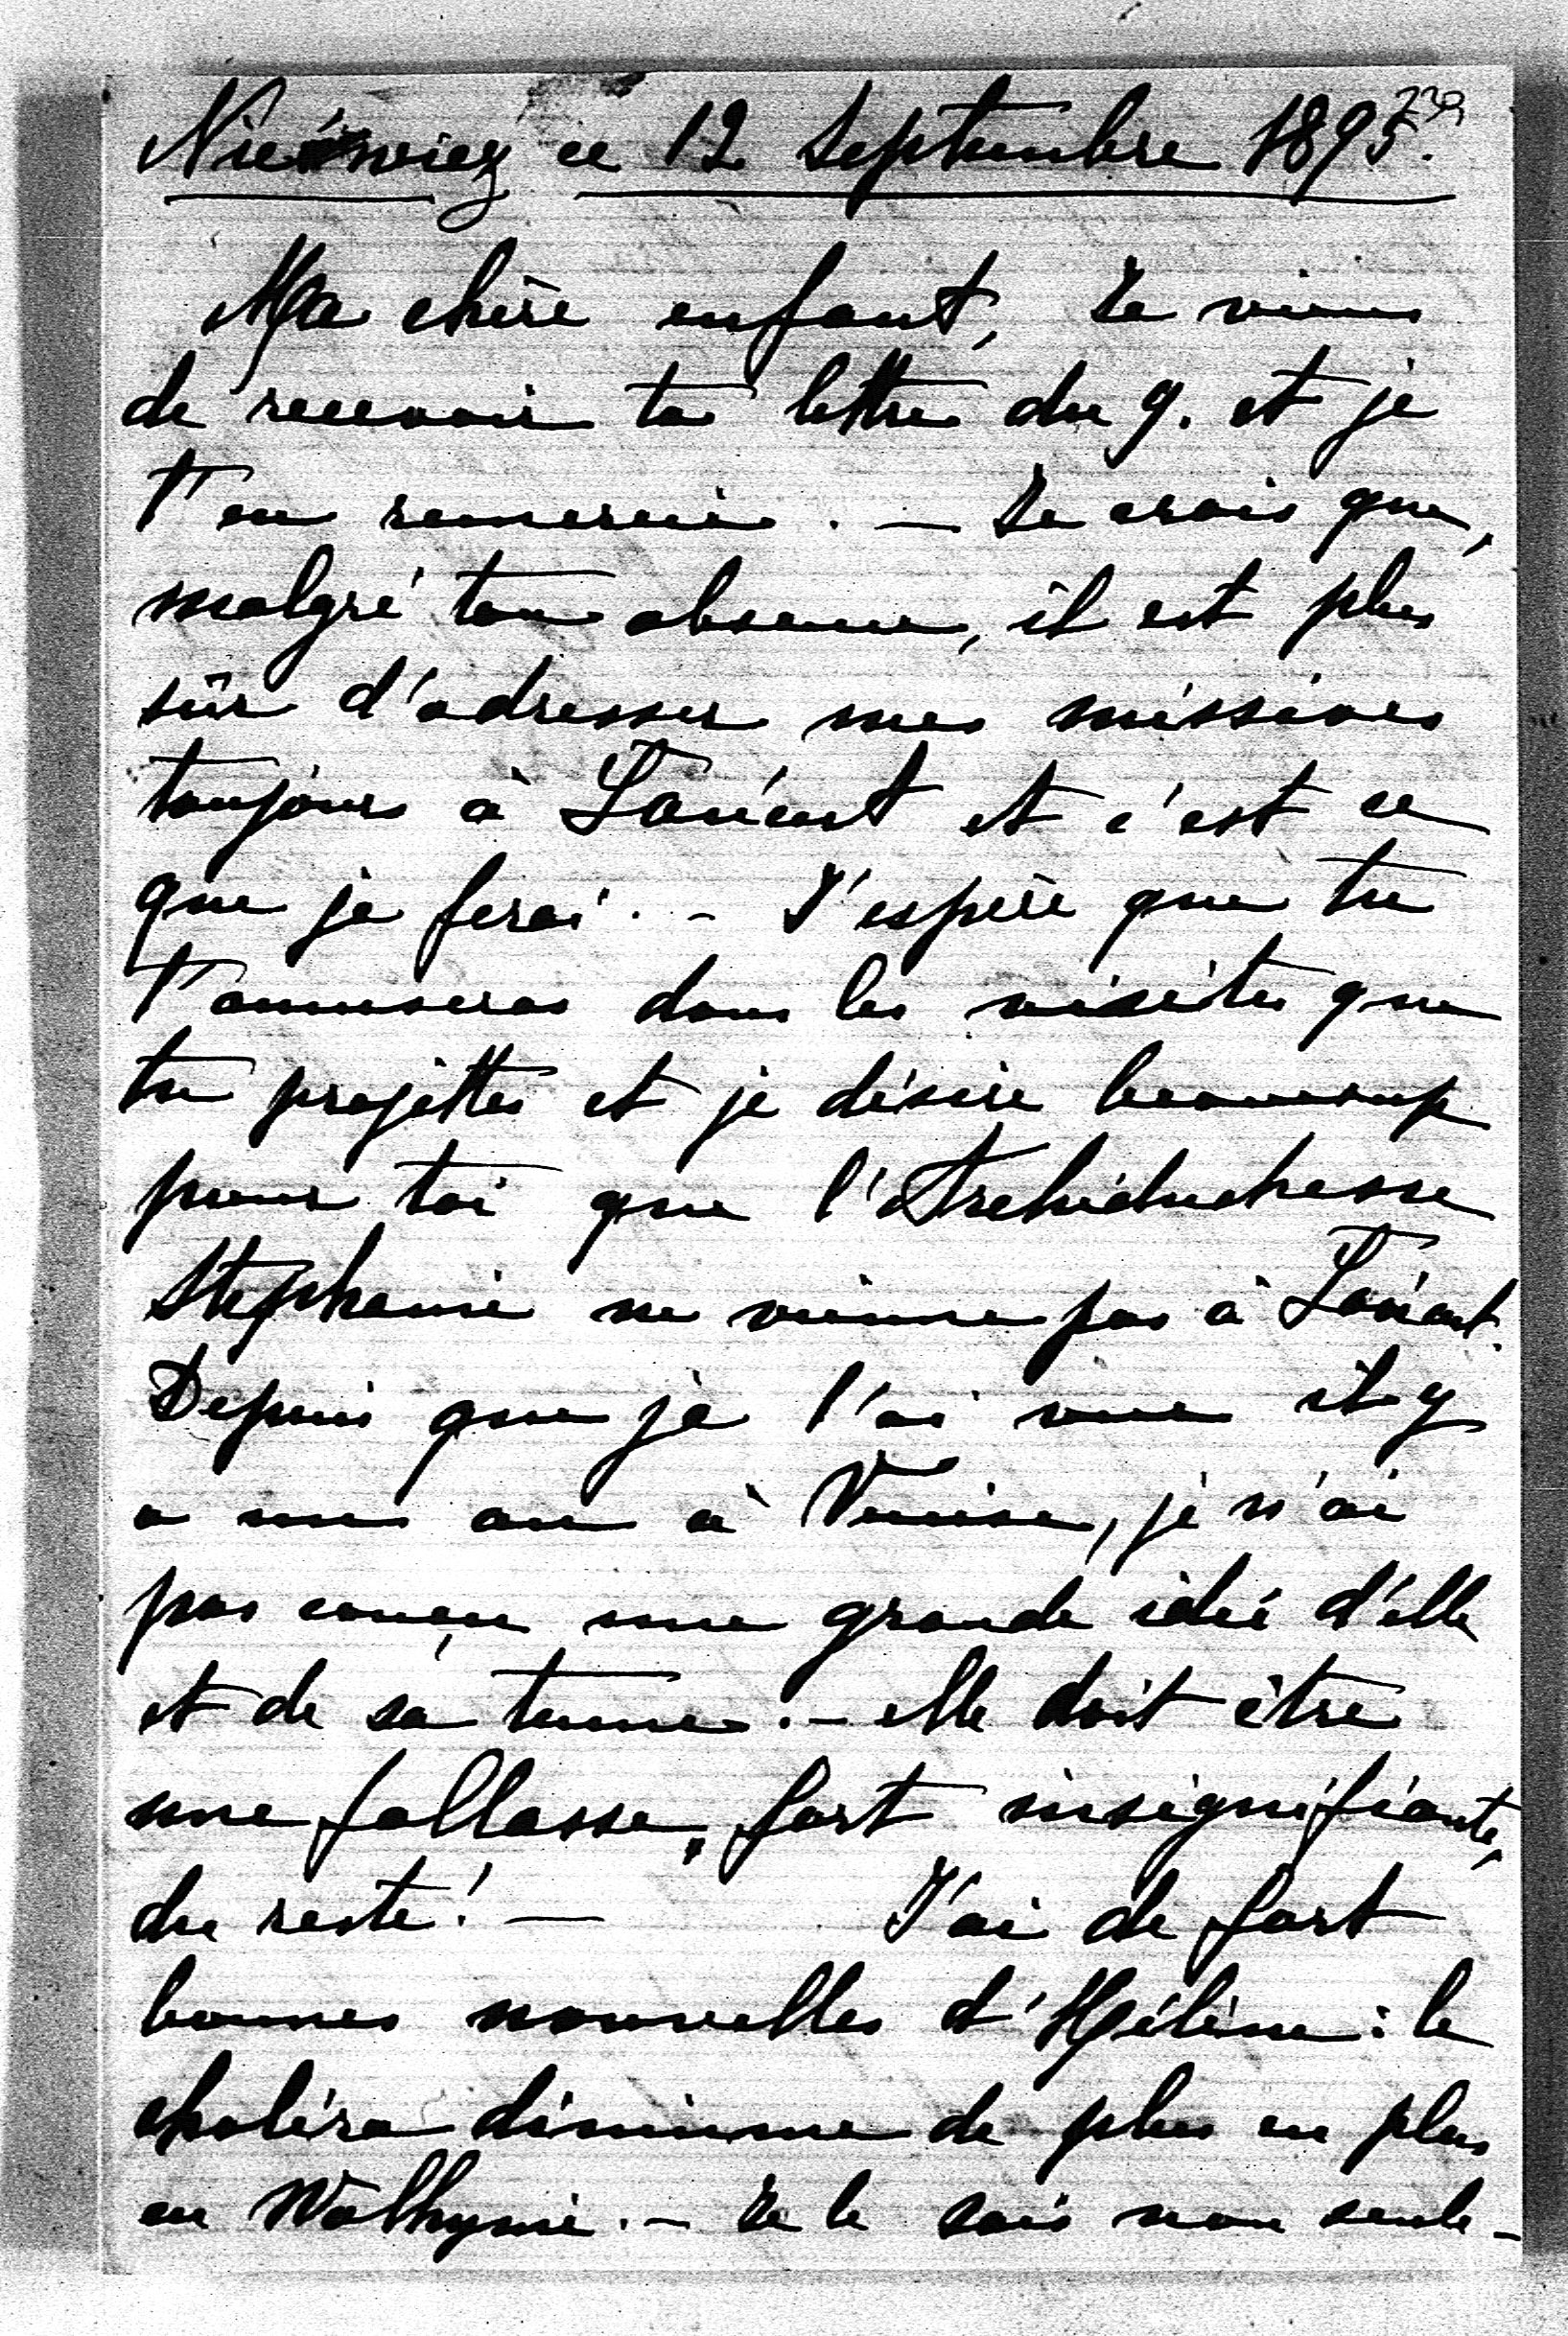 Niéświez ce 12 Septembre 1895.
Ma chère enfant, Je viens
de recevoir ta lettre du 9. et je
t'en remercie. — Je crois que,
malgré ton absence, il est plus
sûr d'adresser mes missives
toujours à Łańcut et c'est ce
que je ferai. - J'espère que tu
t'amuseras dans les visites que
tu projettes et je désire beaucoup
pour toi que l'Archiduchesse
Stephanie ne vienne pas à Łańcut.
Depuis que je l'ai vue il y
a un an à Venise, je n'ai
pas conçu une grande idée d'elle
et de sa tenue. - elle doit être
une follasse, fort insignifiante,
du reste! — J'ai de fort
bonnes nouvelles d'Hélène: le
choléra diminue de plus en plus
en Wolhynie. - Je le sais non seule-